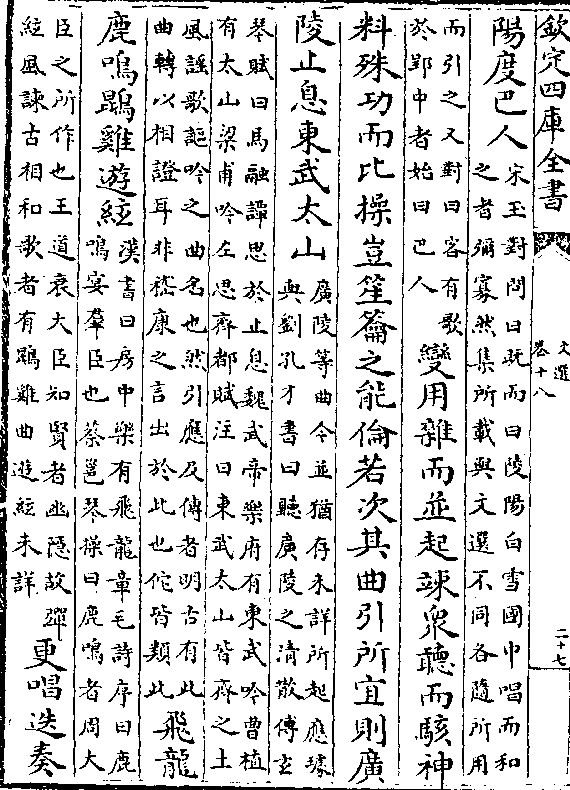 欽定四庫全書
文選
卷十八
二十七
陽度巴人
宋玉對問曰既而曰陵陽白雪國中唱而和
之者彌寡然集所載與文選不同各隨所用
而引之又對曰客有歌
於郢中者始曰巴人
變用雜而並起竦衆聽而駭神
料殊功而比操豈笙籥之能倫若次其曲引所宜則廣
陵止息東武太山
廣陵等曲今並猶存未詳所起應璩
與劉孔才書曰聽廣陵之清散傅玄
琴賦曰馬融譚思於止息魏武帝樂府有東武吟曹植
有太山梁甫吟左思齊都賦注曰東武太山皆齊之土
風謡歌謳吟之曲名也然引應及傅者明古有此
曲轉以相證耳非嵇康之言出於此也佗皆類此
飛龍
鹿鳴鵾雞遊絃
漢書曰房中樂有飛龍章毛詩序曰鹿
鳴宴羣臣也蔡邕琴操曰鹿鳴者周大
臣之所作也王道衰大臣知賢者幽隱故彈
絃風諫古相和歌者有鵾雞曲遊絃未詳
更唱迭奏